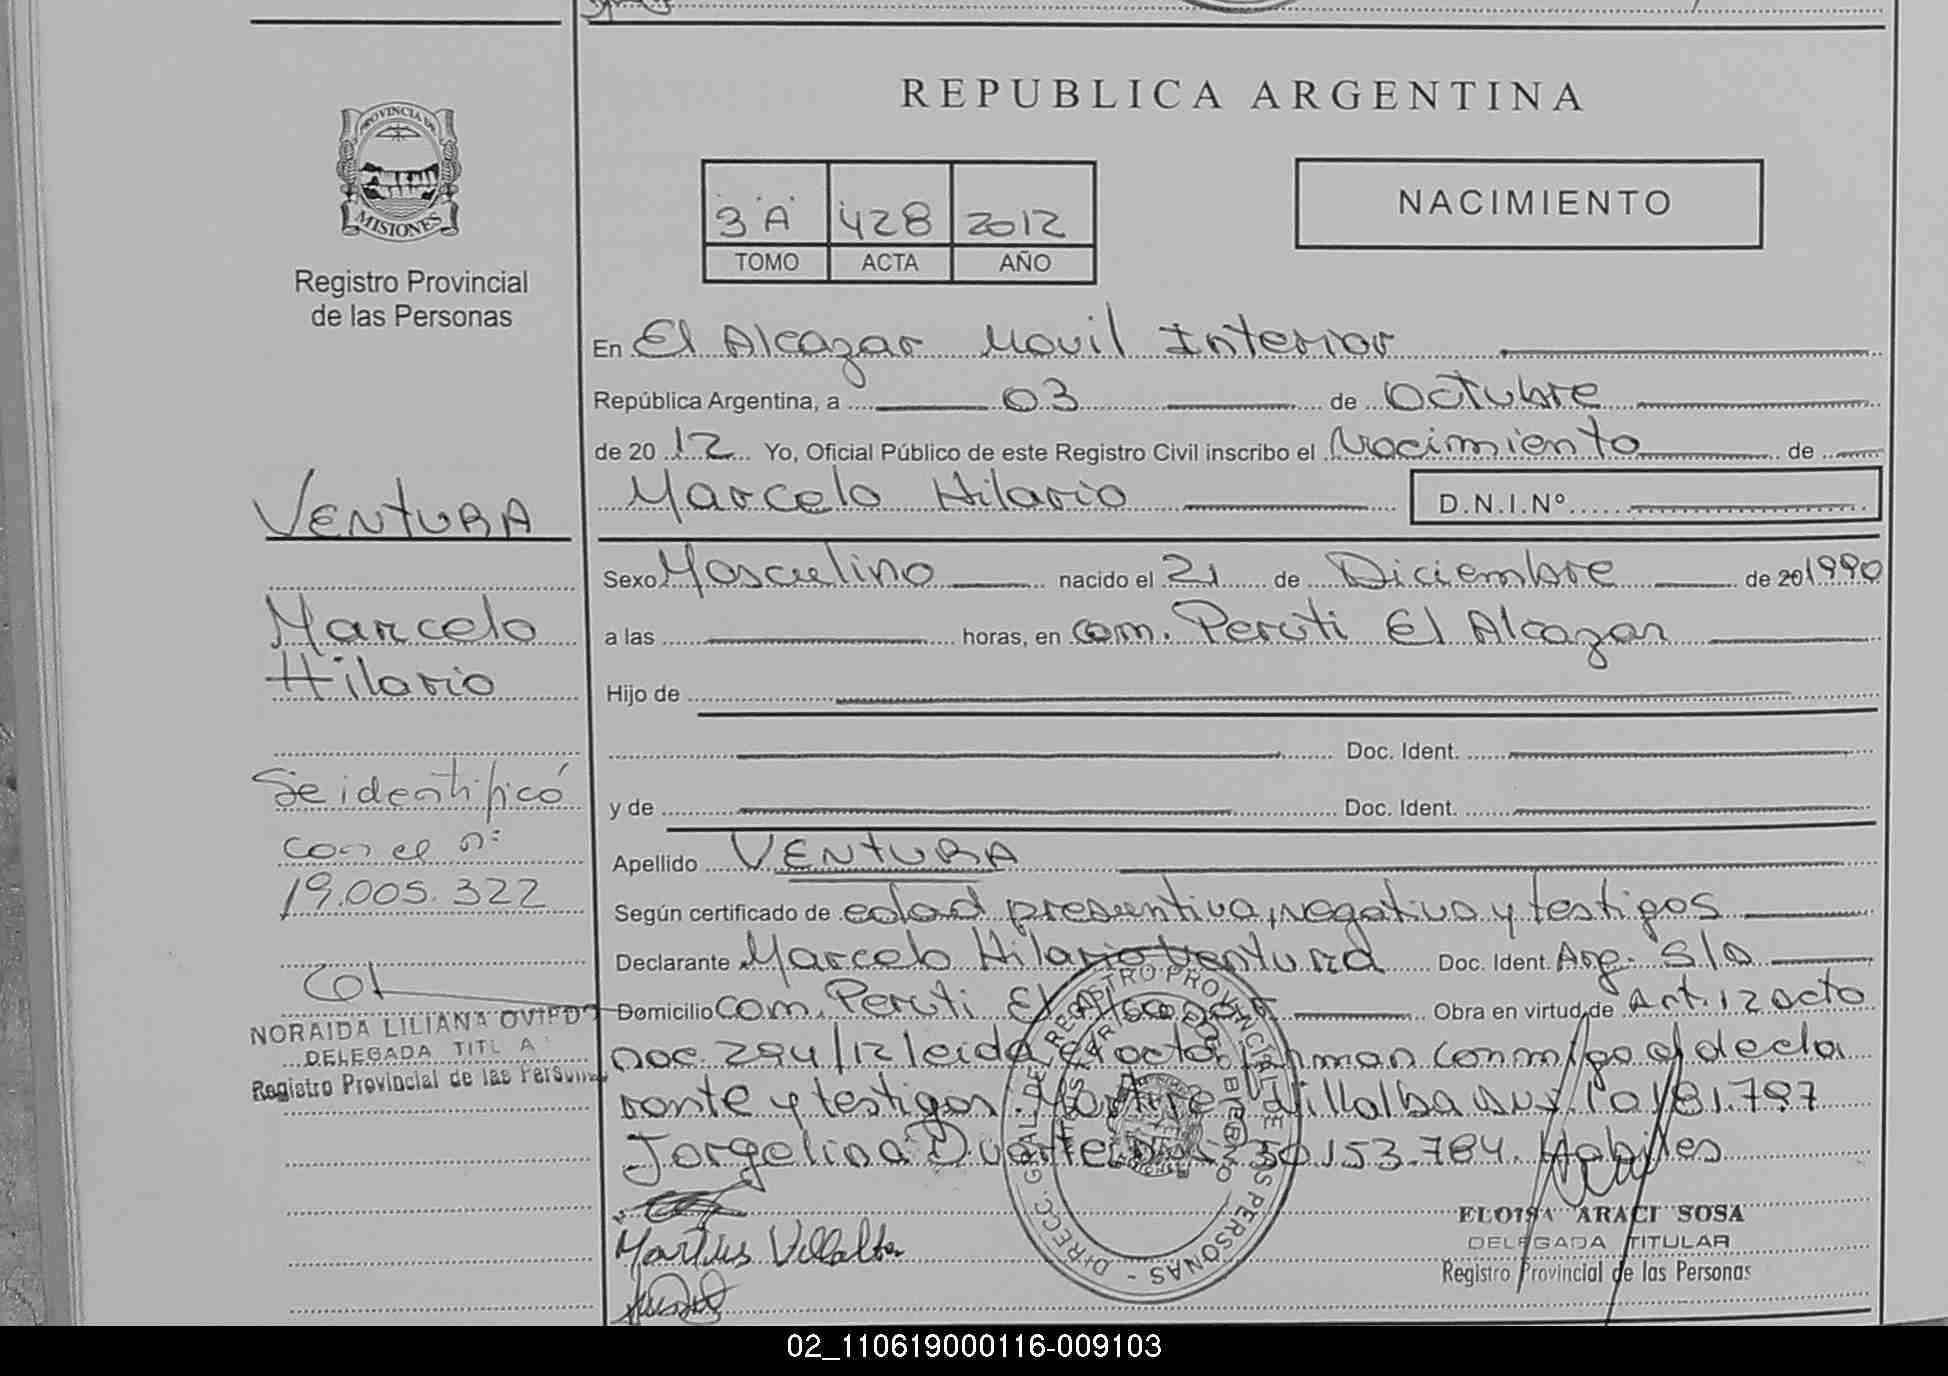 REPUBLICA ARGENTINA
PROVINCIA DE
MISIONES
Registro Provincial
de las Personas
3 "A" 428 2012
TOMO ACTA AÑO
NACIMIENTO
En El Alcazar Movil Interior
República Argentina, a 03 de Octubre
de 20 12 Yo, Oficial Público de este Registro Civil inscribo el Nacimiento de
Marcelo Hilario D.N.I.Nº
Sexo Masculino nacido el 21 de Diciembre de 20 1990
a las horas, en Com. Peruti El Alcazar
Hijo de
Doc. Ident.
y de Doc. Ident.
Apellido VENTURA
Según certificado de edad presuntiva, negativa y testigos
Declarante Marcelo Hilario Ventura Doc. Ident. Arg. S/D
Domicilio Com. Peruti El Alcazar Obra en virtud de Art. 12 acto
noc. 294/12 leida el acta firman conmigo el decla
rante y testigos. Villalba 10/81.797
Jorgelina Duarte 30.153.784. Habiles
Villalba
ELOISA ARACI SOSA
DELEGADA TITULAR
Registro Provincial de las Personas
DIRECC. GRAL. DE REGISTRO PROVINCIAL DE LAS PERSONAS -
VENTURA
Marcelo
Hilario
Se identificó
con el nº
19.005.322
NORAIDA LILIANA OVIEDO
DELEGADA TITULA
Registro Provincial de las Personas
02_110619000116-009103